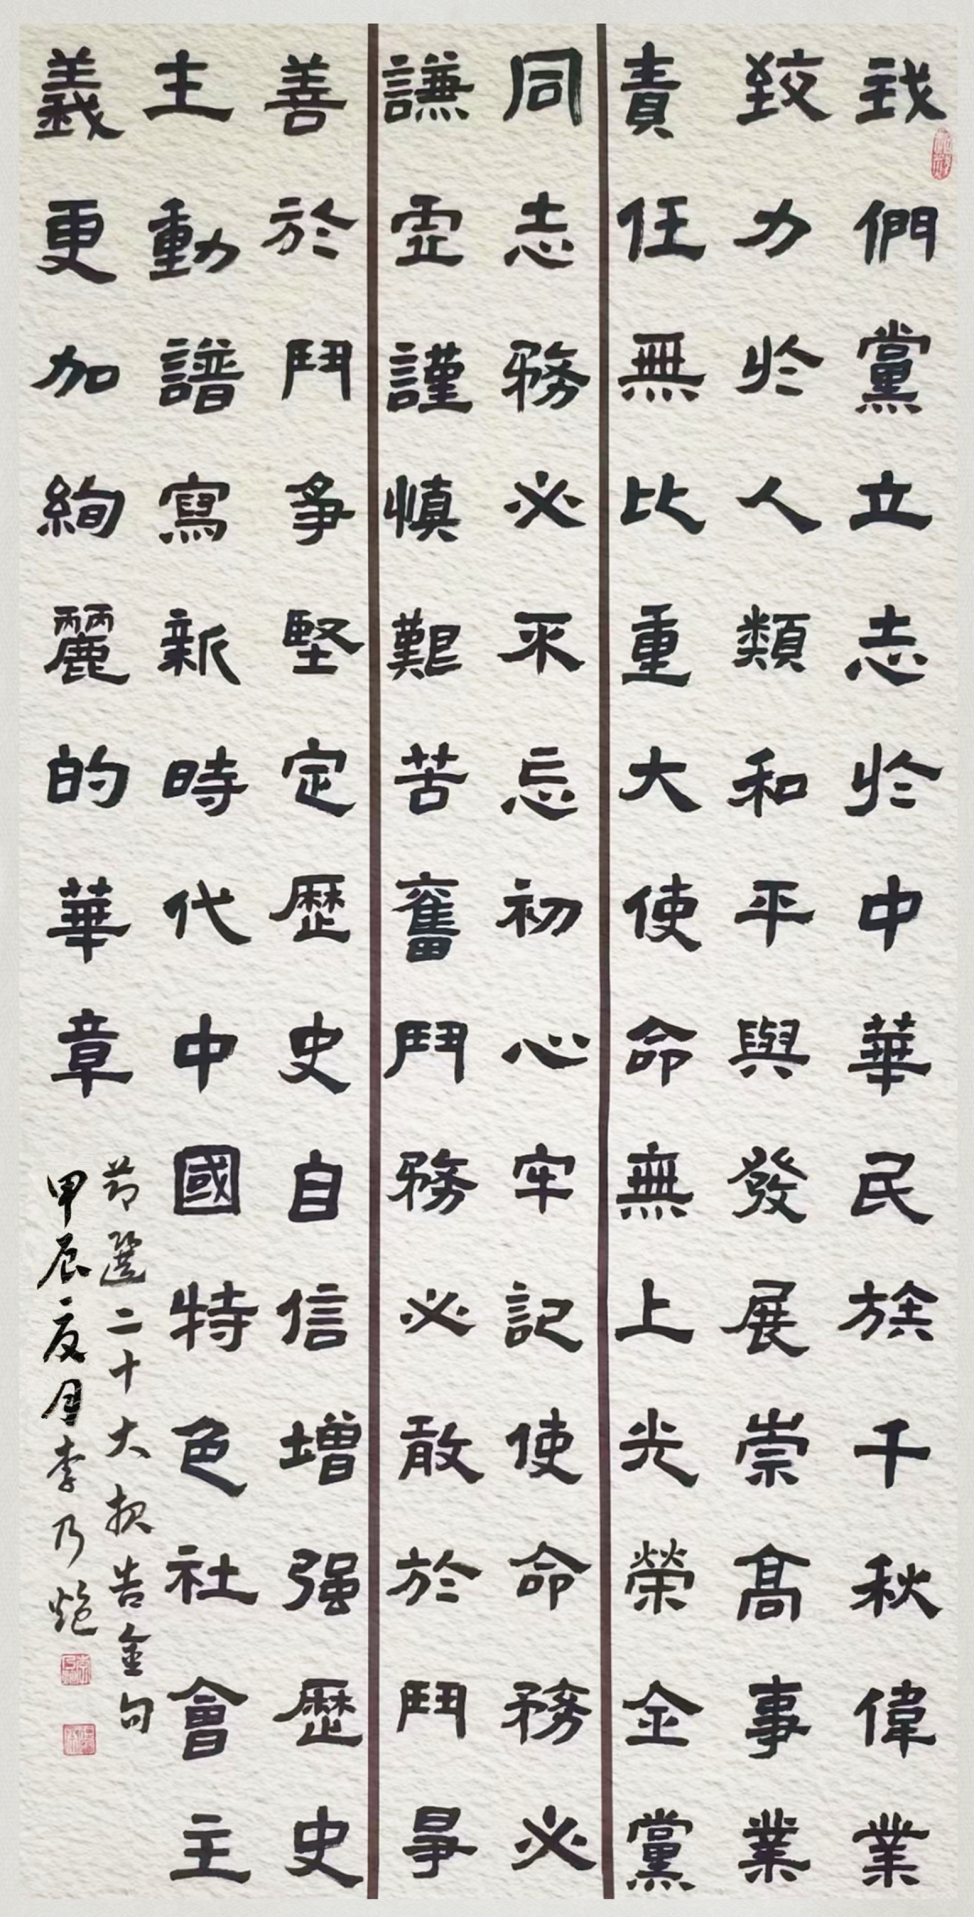 我們黨立志於中華民族千秋偉業
致力於人類和平與發展崇高事業
責任無比重大使命無上光榮全黨
同志務必不忘初心牢記使命務必
謙虛謹慎艱苦奮鬥務必敢於鬥爭
善於鬥爭堅定歷史自信增强歷史
主動譜寫新時代中國特色社會主
義更加絢麗的華章
節選二十大报告金句
甲辰夏月李乃